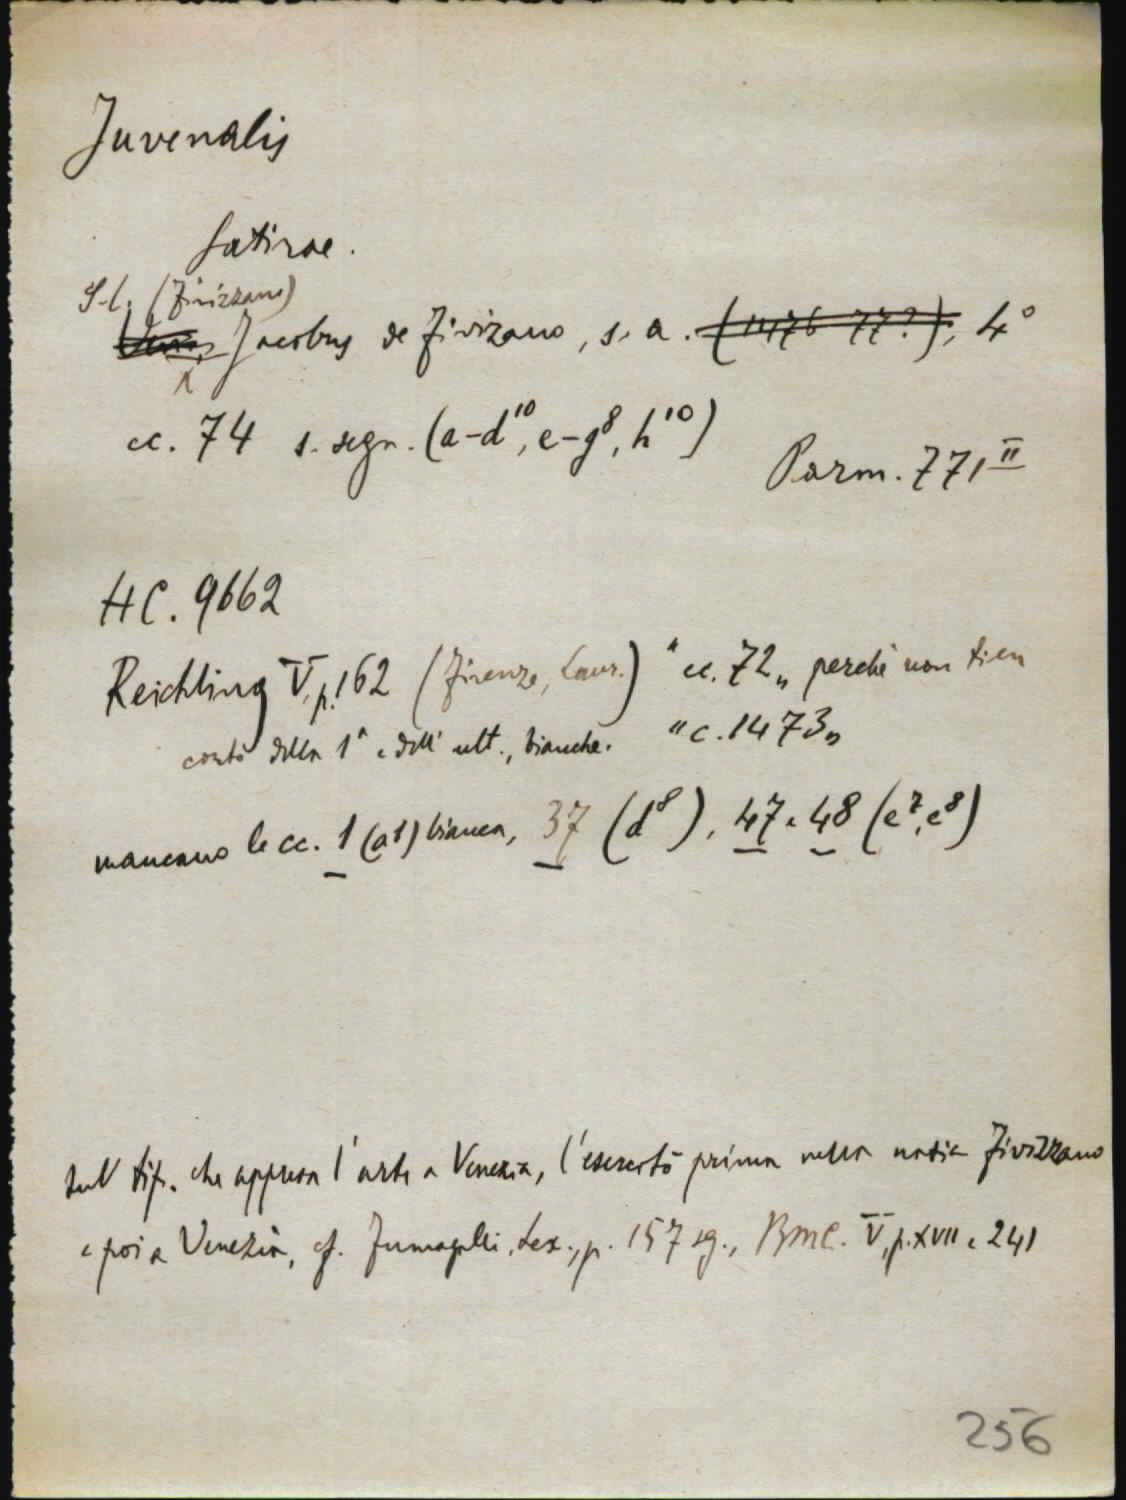 Juvenalis
Satirae.
S.l. (Fivizzano)
Jacobus de Fivizano, s. a. (1476-77?), 4°
cc. 74 s. segn. (a-d¹⁰, e-g⁸, h¹⁰)
Parm. 771 II
HC. 9662
Reichling V, p. 162 (Firenze, Laur.) "cc. 72„ perchè non tien
conto della 1ª e dell' ult., bianche. "c. 1473„
mancano le cc. 1 (a1) bianca, 37 (d⁸), 47 e 48 (e⁷, e⁸)
sul tip. che appresa l'arte a Venezia, l'esercitò prima nella natia Fivizzano
e poi a Venezia, cf. Fumagalli, Lex., p. 157 sg., BMC. V, p. XVII e 241
256